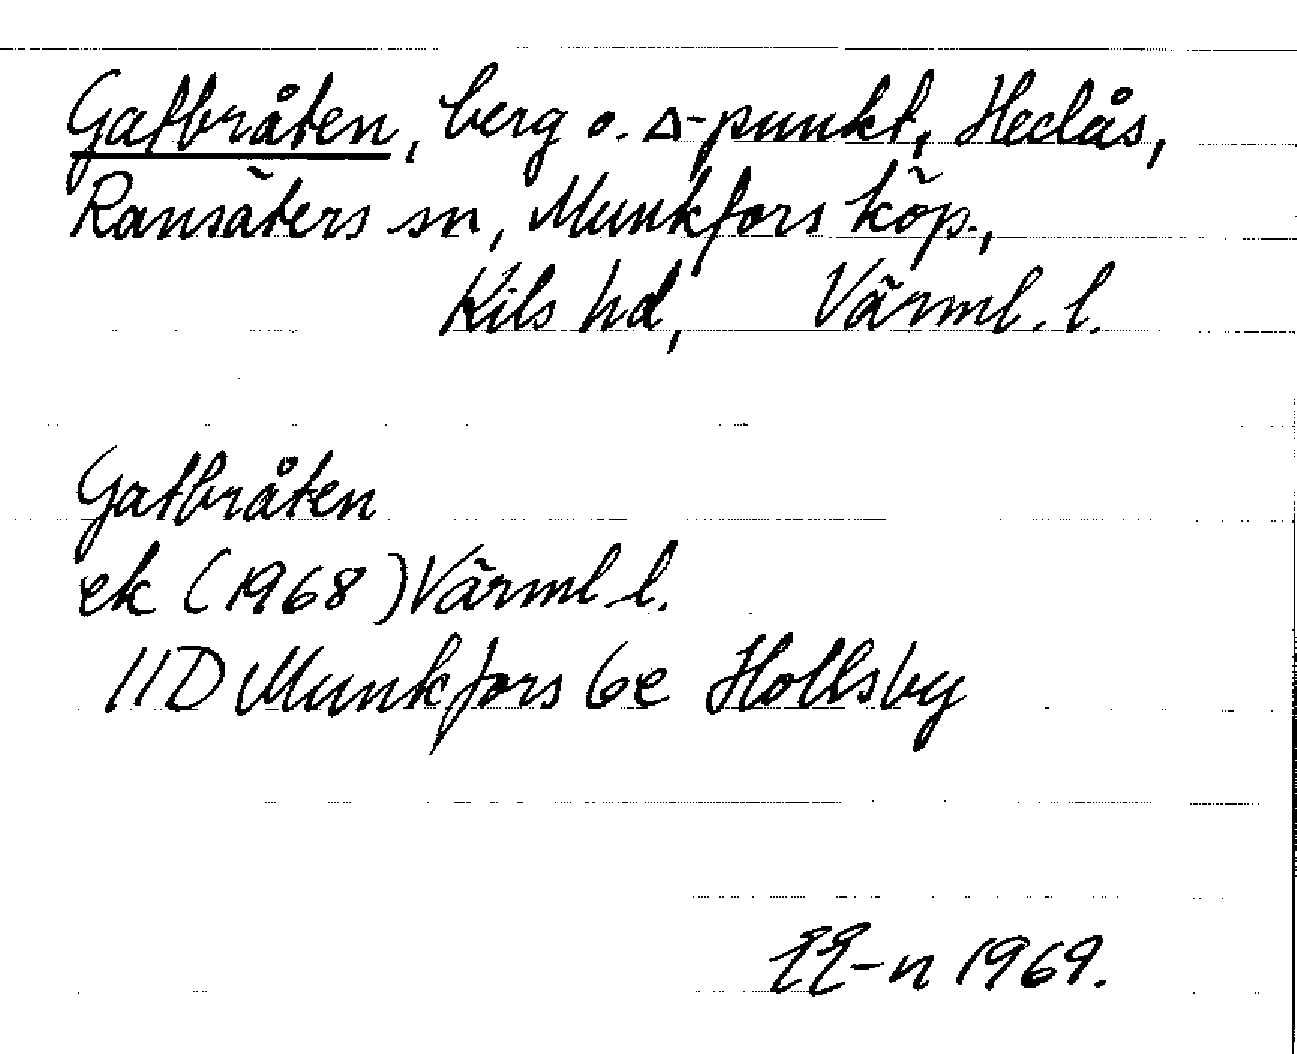 Gatbråten, berg o. △-punkt, Hedås,
Ransäters sn, Munkfors köp.,
Kils hd, Värml. l.
Gatbråten
ek (1968) Värml. l.
11D Munkfors 6e Hollsby
EE-n 1969.